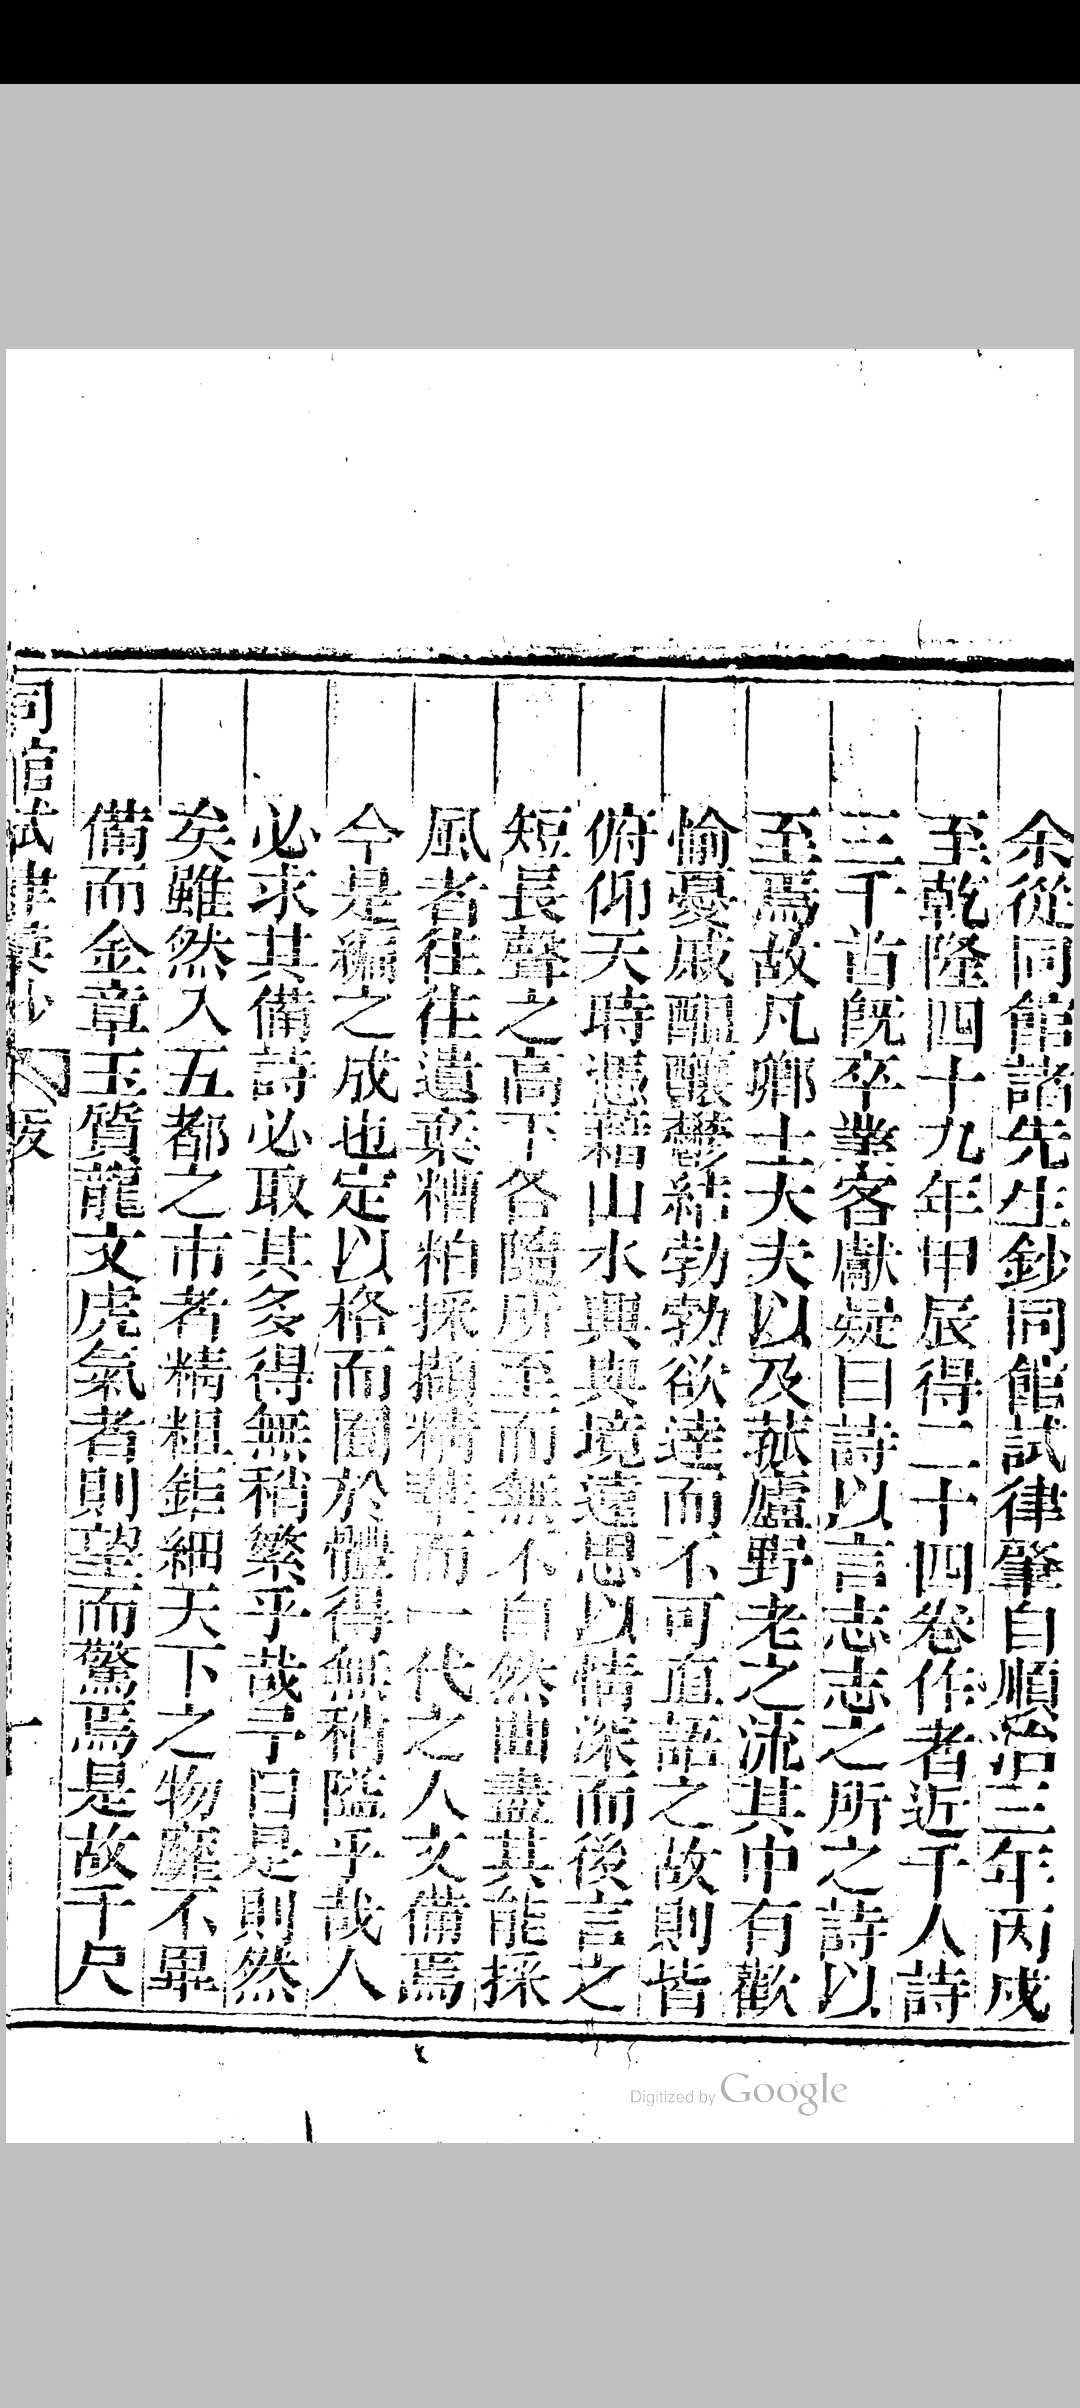 余從同館諸先生鈔同館試律肇自順治三年丙戌
至乾隆四十九年甲辰得二十四卷作者近千人詩
三千首旣卒業客獻疑曰詩以言志志之所之詩以
至焉故凡鄕士大夫以及菰廬野老之流其中有歡
愉憂戚醞釀鬱結勃勃欲達而不可直語之故則皆
俯仰天時憑藉山水興與境遠思以情深而後言之
短長聲之高下各隨所至而無不自然曲盡其能採
風者往往遺棄糟粕採擷精華而一代之人文備焉
今是編之成也定以格而囿於體得無稍隘乎哉人
必求其備詩必取其多得無稍繁乎哉予曰是則然
矣雖然入五都之市者精粗鉅細天下之物靡不畢
備而金章玉質龍文虎氣者則望而驚焉是故千尺
同館試律 鈔 跋 一
Digitized by Google